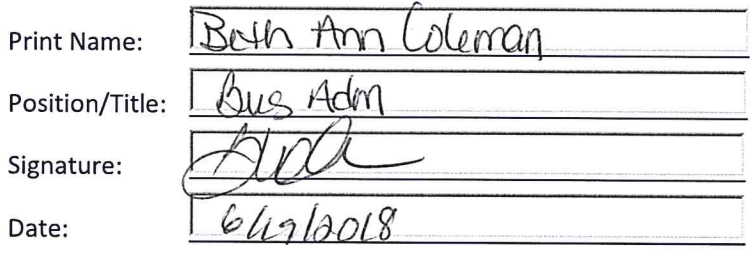 Print Name: Beth Ann Coleman
Position/Title: Bus Adm
Signature:
Date: 6/19/2018